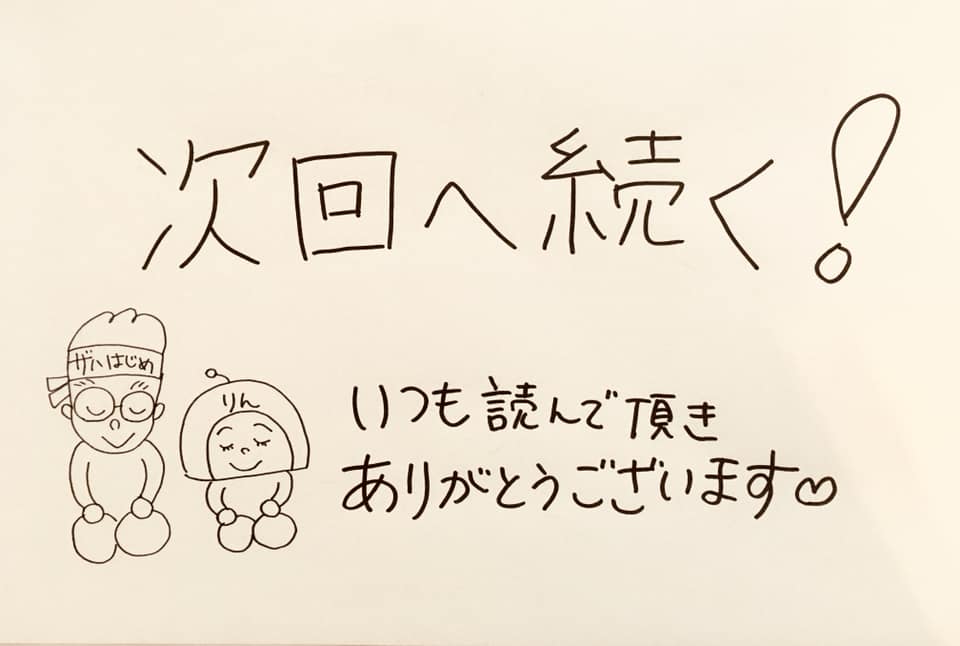 次回へ続く!
ザ・はじめ
りん
いつも読んで頂き
ありがとうございます♡